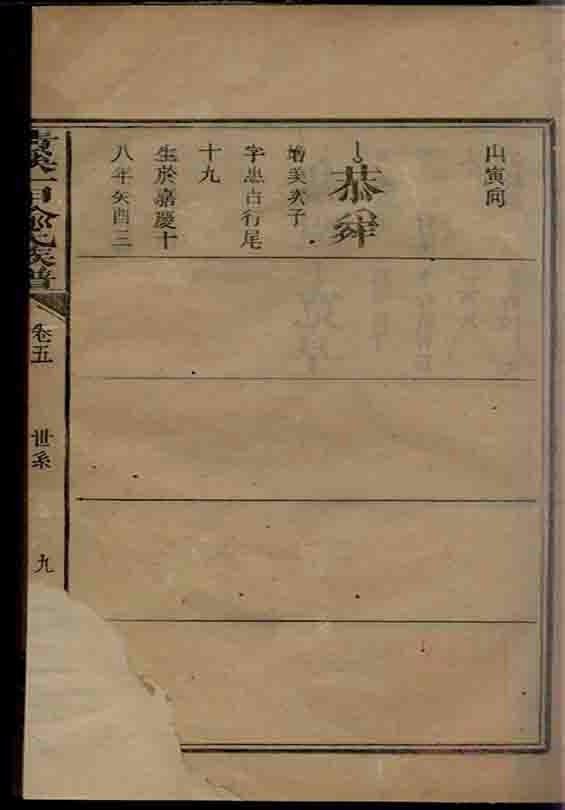 山寅向
恭舜
增美次子
字惠占行尾
十九
生於嘉慶十
八年癸酉三
俞氏族譜
卷五
世系
九